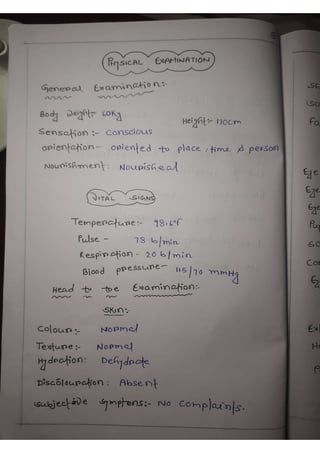 PHYSICAL EXAMINATION
General Examination:-
Body Weight:- 60Kg
Height:- 170cm
Sensation:- Conscious
Orientation- Oriented to place, time & person
Nourishment: Nourished
VITAL SIGNS
Temperature:- 98.6°f
Pulse - 78 b/min
Respiration- 20 b/min
Blood pressure- 115/70 mmHg
Head to toe Examination:-
SKIN:-
Colour:- Normal
Texture:- Normal
Hydration: Dehydrate
Discolouration: Absent
Subjective Symptoms:- No Complaints.